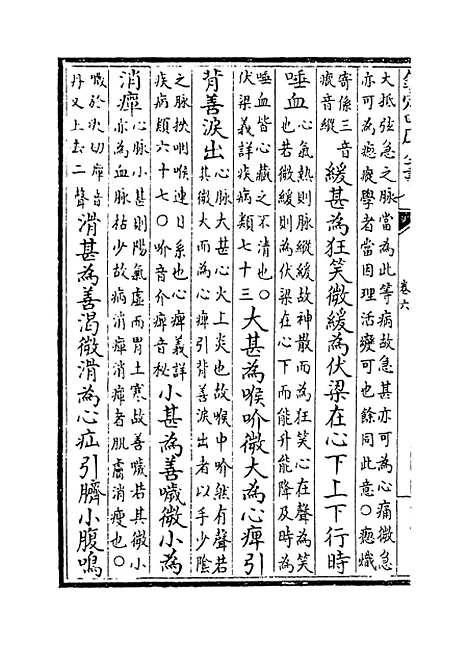 卷六
大抵弦急之脉當為此等病故急甚亦可為心痛微急
亦可為瘛瘲學者當因理活變可也餘同此意〇瘛熾
寄係三音
瘲音縱
緩甚為狂笑微緩為伏梁在心下上下行時
唾血
心氣熱則脉縱緩故神散而為狂笑心在聲為笑
也若微緩則為伏梁在心下而能升能降及時為
唾血皆心藏之不清也〇
伏梁義詳疾病類七十三
大甚為喉吤微大為心痺引
背善淚出
心脉大甚心火上炎也故喉中吤然有聲若
其微大而為心痺引背善淚出者以手少陰
之脉挾咽喉連目系也心痺義詳
疾病類六十七〇吤音介痺音秘
小甚為善噦微小為
消癉
心脉小甚則陽氣虛而胃土寒故善噦若其微小
亦為血脉枯少故病消癉消癉者肌膚消瘦也〇
噦於決切癉音
丹又上去二聲
滑甚為善渴微滑為心疝引臍小腹鳴